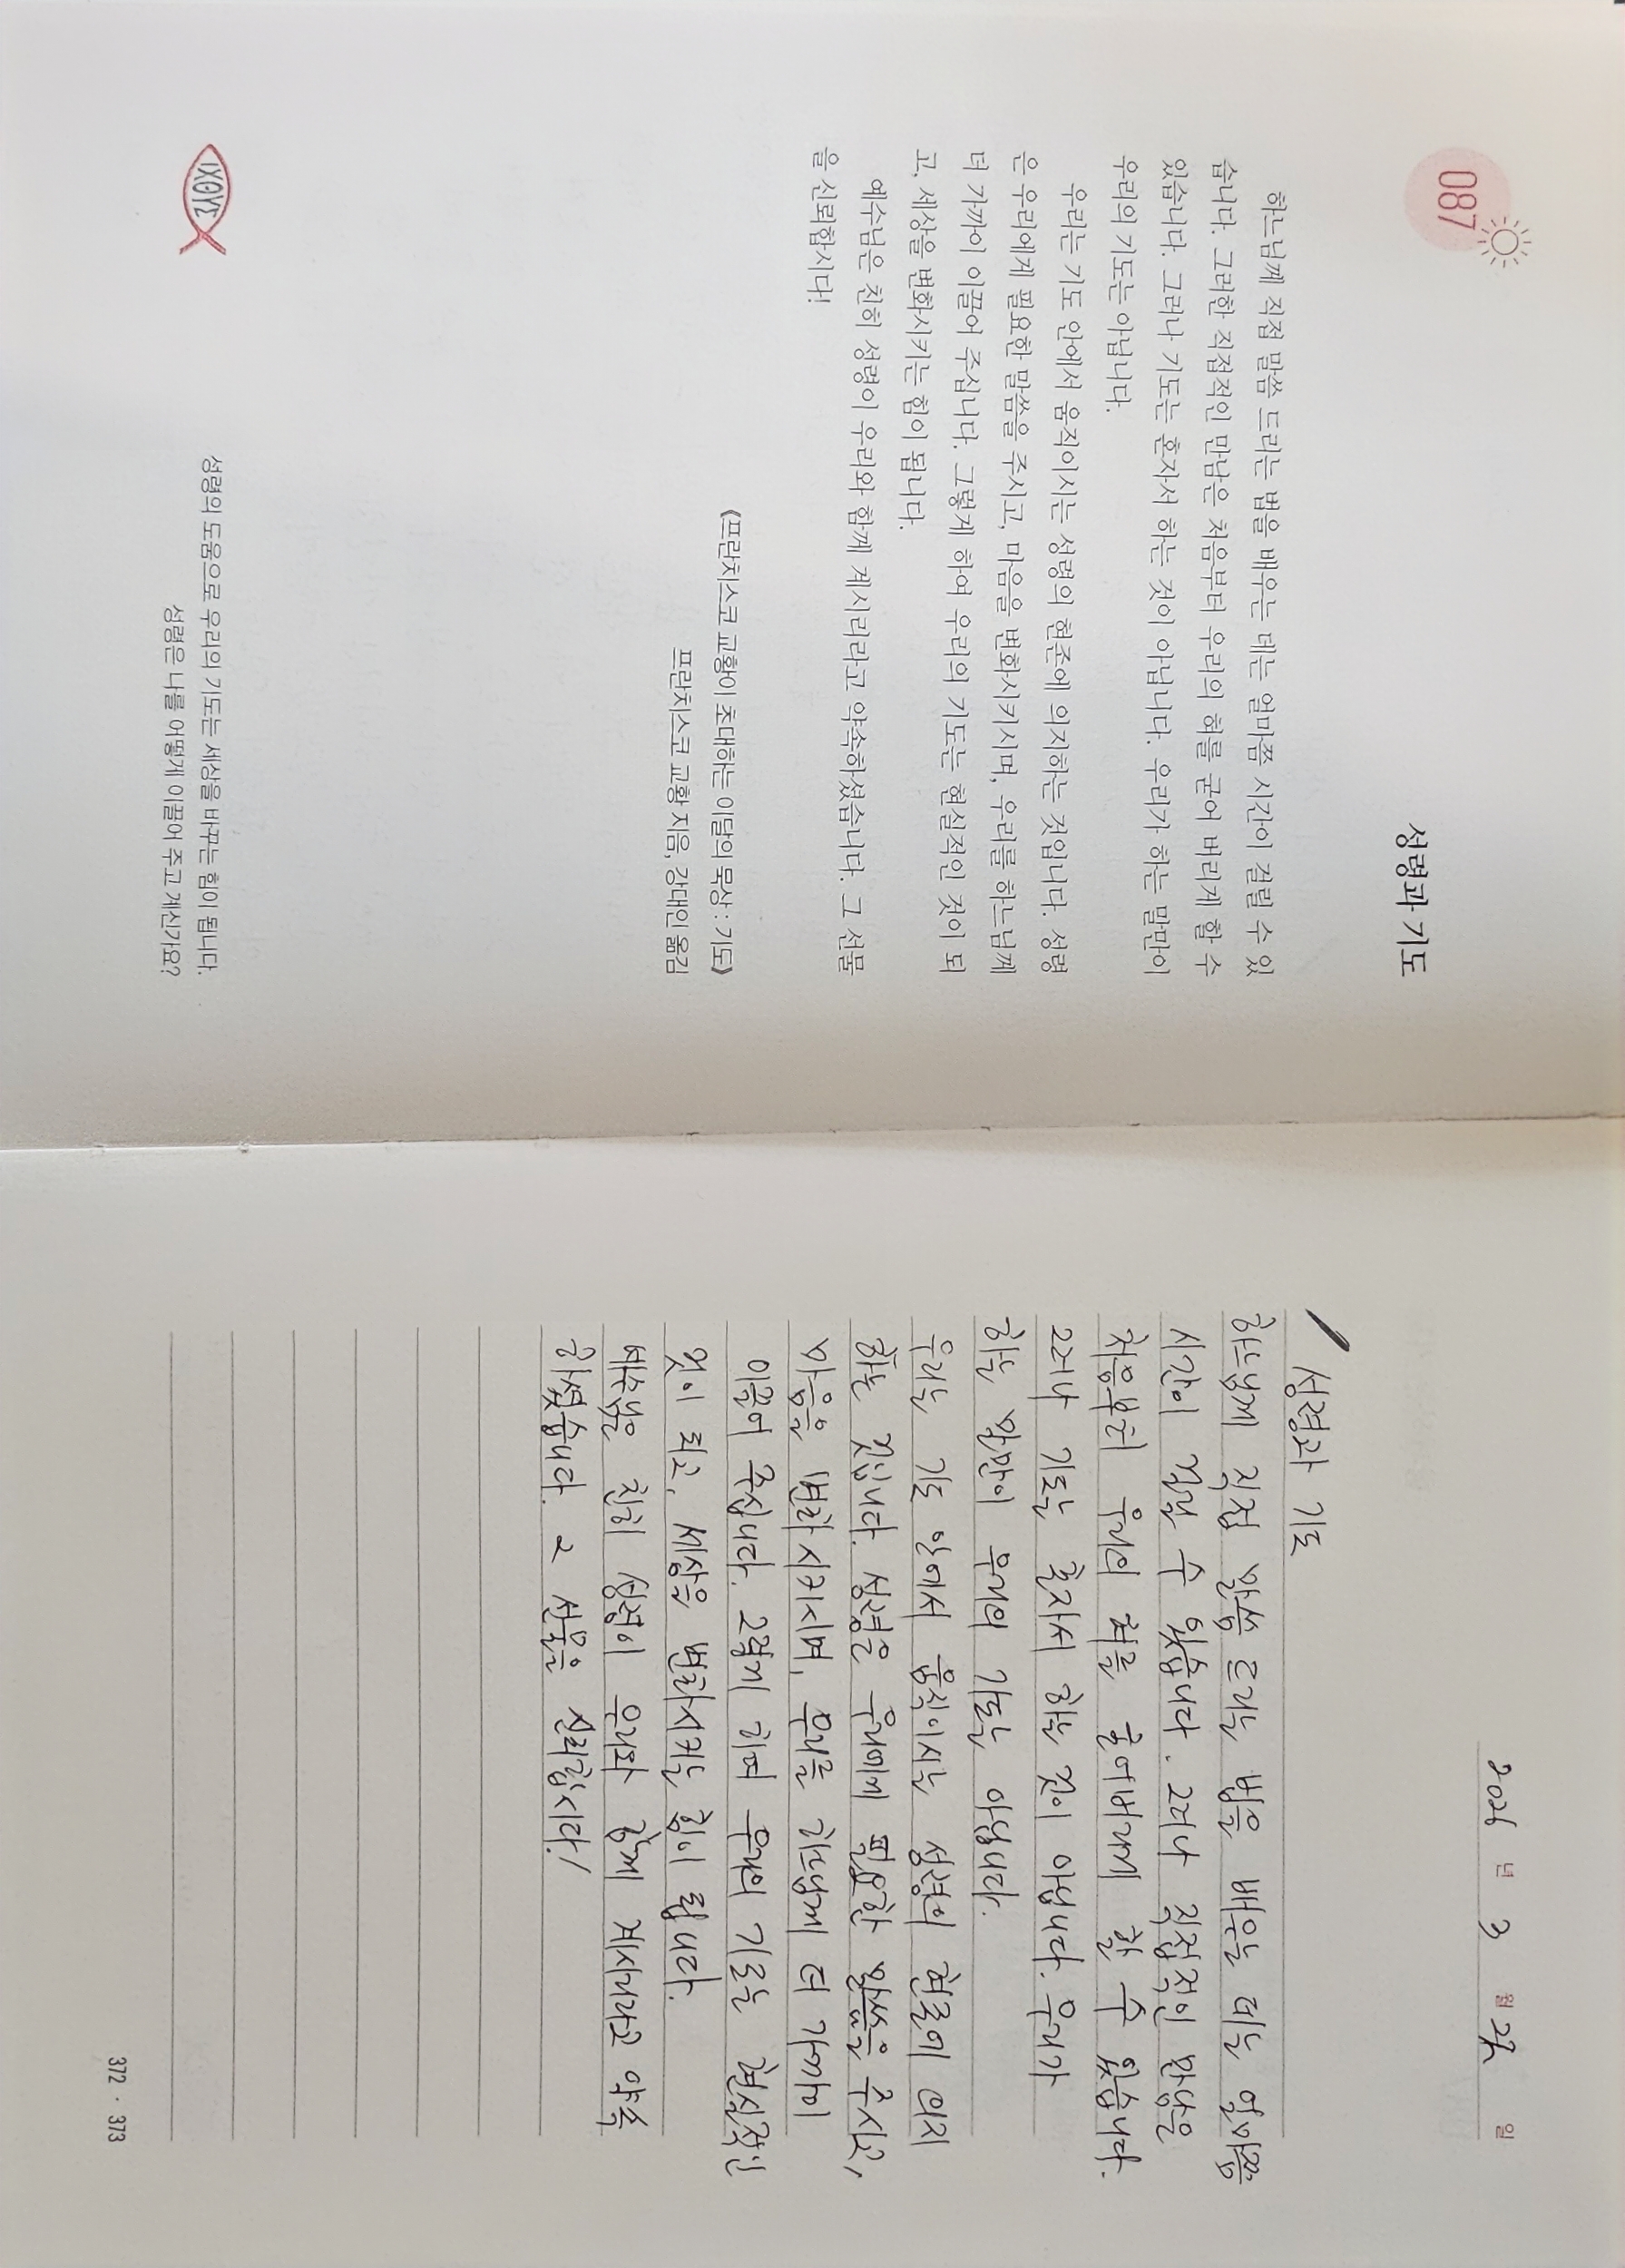 087
성령과 기도
하느님께 직접 말씀 드리는 법을 배우는 데는 얼마쯤 시간이 걸릴 수 있
습니다. 그러한 직접적인 만남은 처음부터 우리의 혀를 굳어 버리게 할 수
있습니다. 그러나 기도는 혼자서 하는 것이 아닙니다. 우리가 하는 말만이
우리의 기도는 아닙니다.
우리는 기도 안에서 움직이시는 성령의 현존에 의지하는 것입니다. 성령
은 우리에게 필요한 말씀을 주시고, 마음을 변화시키시며, 우리를 하느님께
더 가까이 이끌어 주십니다. 그렇게 하여 우리의 기도는 현실적인 것이 되
고, 세상을 변화시키는 힘이 됩니다.
예수님은 친히 성령이 우리와 함께 계시리라고 약속하셨습니다. 그 선물
을 신뢰합시다!
《프란치스코 교황이 초대하는 이달의 묵상: 기도》
프란치스코 교황 지음, 강대인 옮김
ΙΧΘΥΣ
성령의 도움으로 우리의 기도는 세상을 바꾸는 힘이 됩니다.
성령은 나를 어떻게 이끌어 주고 계신가요?
2026 년 3 월 일
성령과 기도
하느님께 직접 말씀 드리는 법을 배우는 데는 얼마쯤
시간이 걸릴 수 있습니다. 그러나 직접적인 만남은
처음부터 우리의 혀를 굳어버리게 할 수 있습니다.
그러나 기도는 혼자서 하는 것이 아닙니다. 우리가
하는 말만이 우리의 기도는 아닙니다.
우리는 기도 안에서 움직이시는 성령의 현존에 의지
하는 것입니다. 성령은 우리에게 필요한 말씀을 주시고,
마음을 변화시키시며, 우리를 하느님께 더 가까이
이끌어 주십니다. 그렇게 하여 우리의 기도는 현실적인
것이 되고, 세상을 변화시키는 힘이 됩니다.
예수님은 친히 성령이 우리와 함께 계시리라고 약속
하셨습니다. 그 선물을 신뢰합시다!
372 · 373